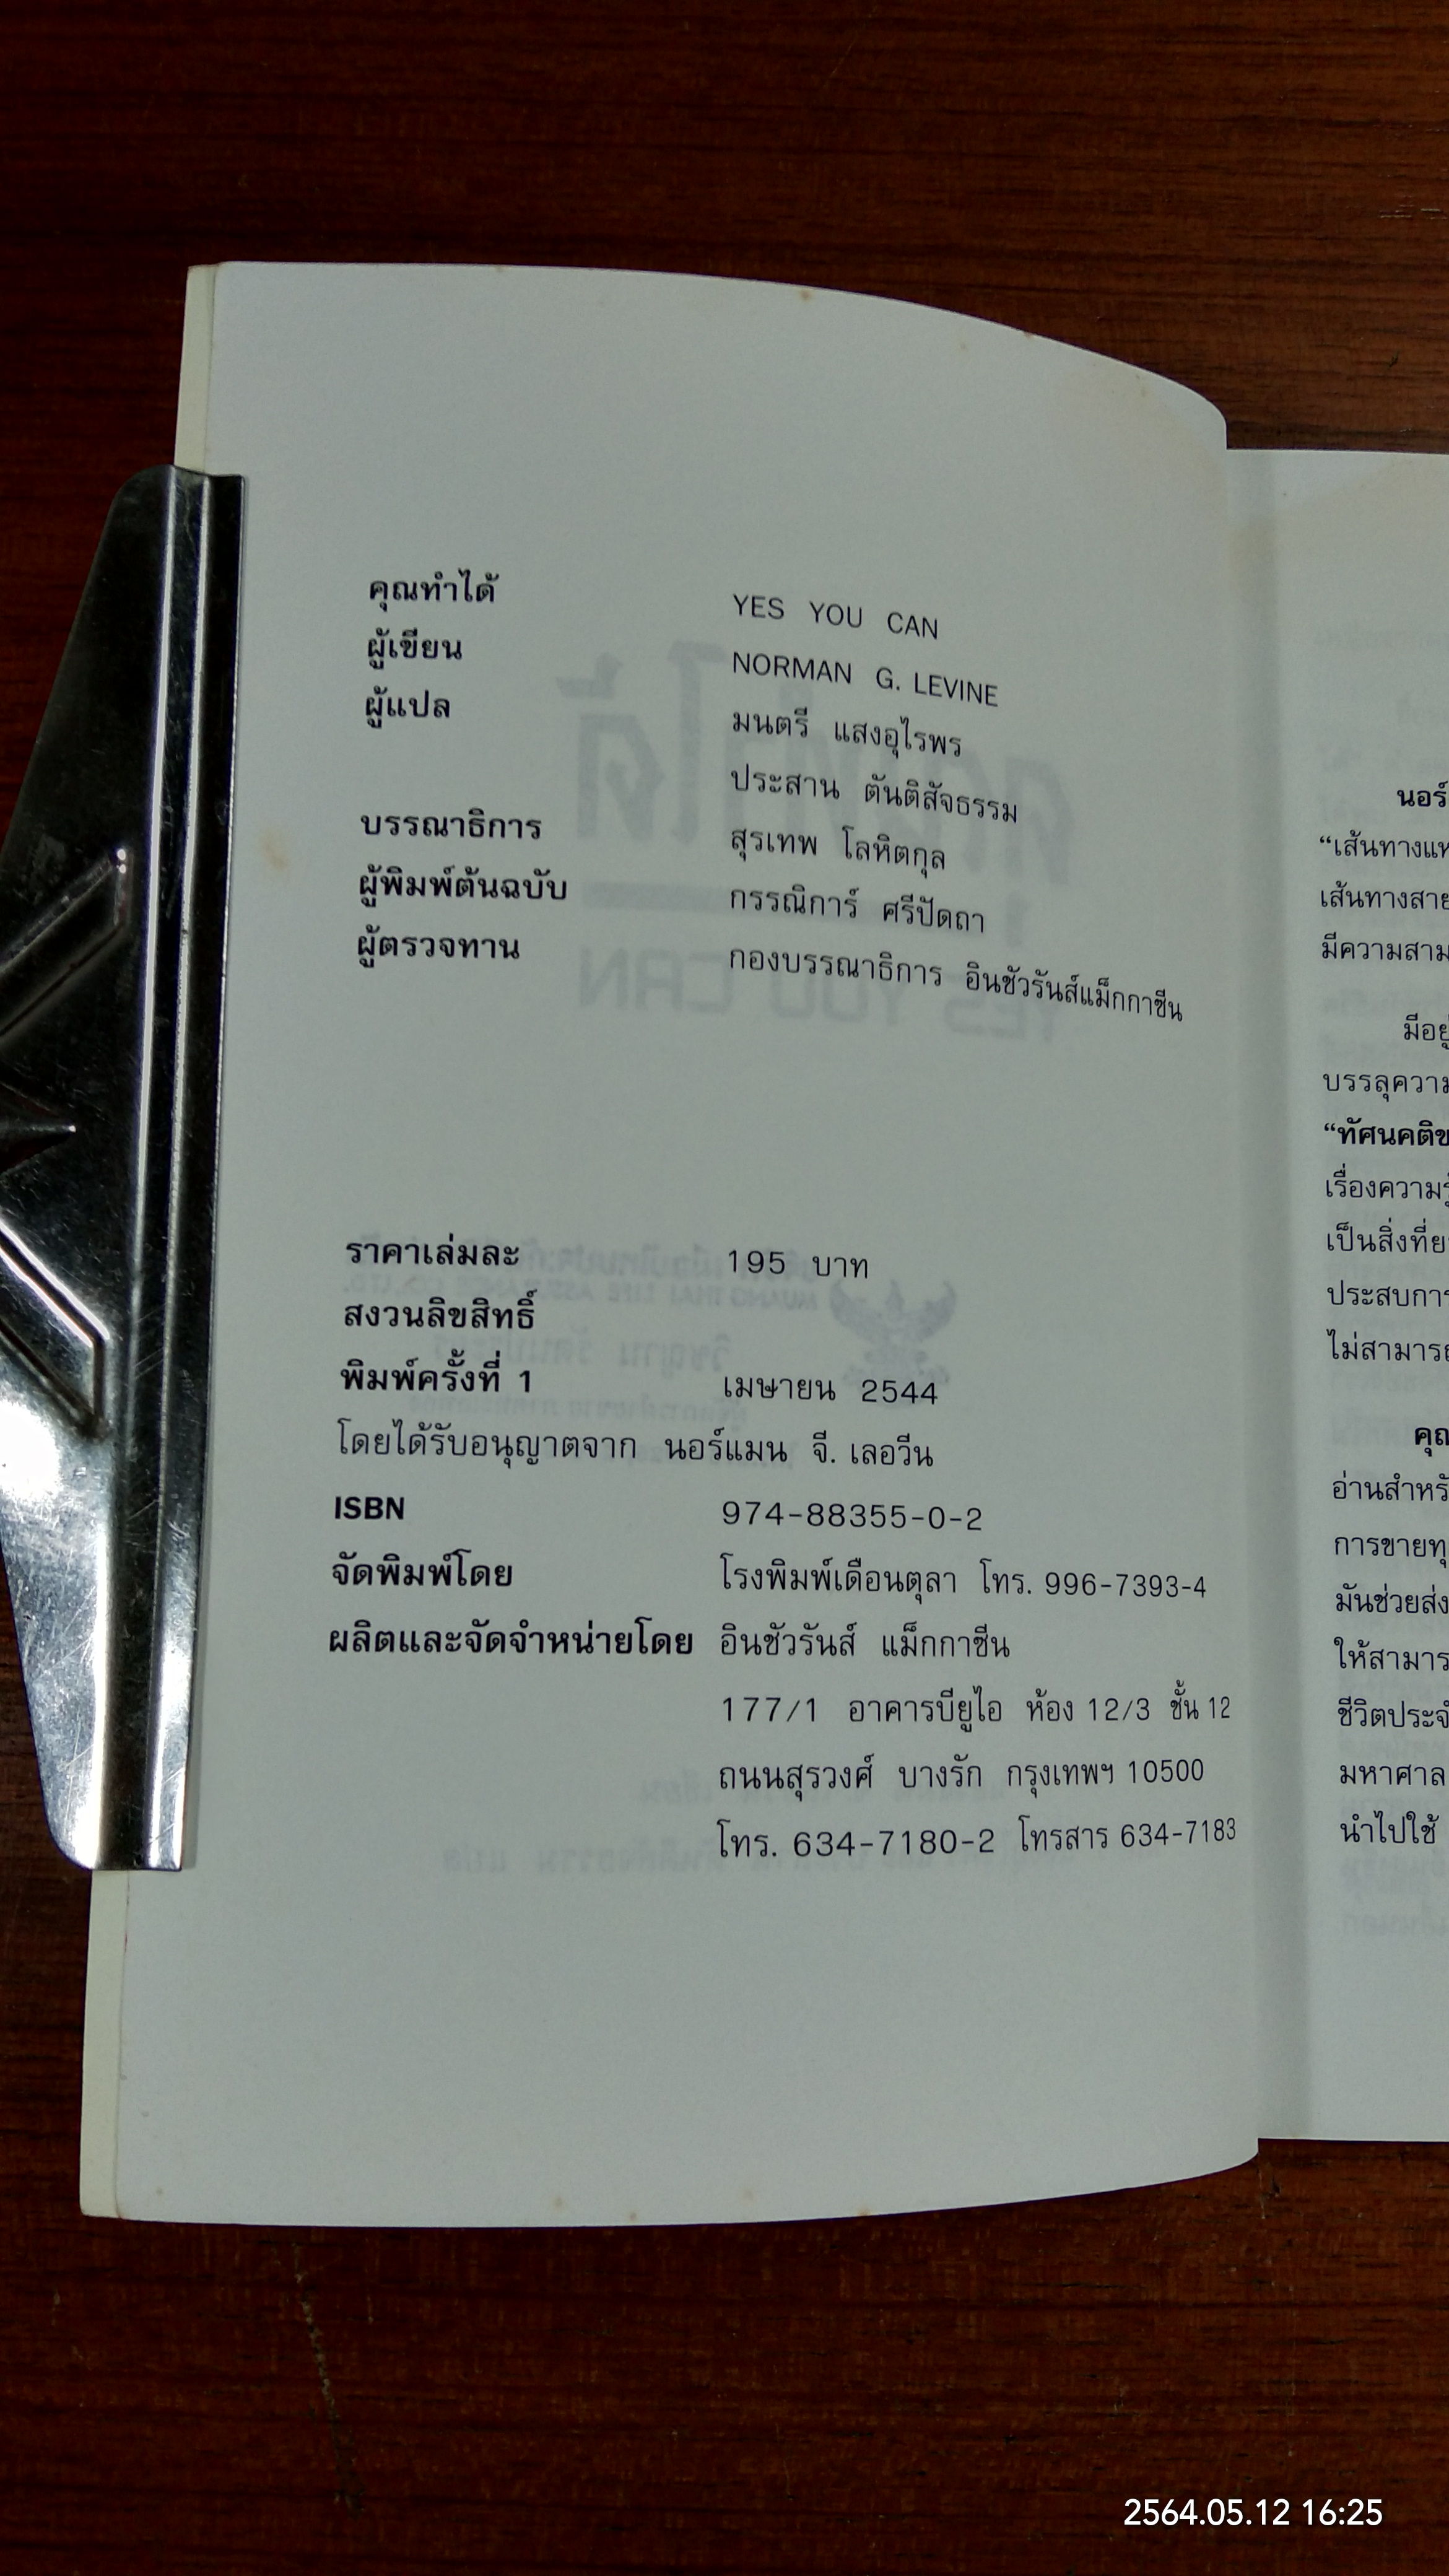 คุณทำได้ YES YOU CAN
ผู้เขียน NORMAN G. LEVINE
ผู้แปล มนตรี แสงอุไรพร
ประสาน ตันติสัจธรรม
บรรณาธิการ สุรเทพ โลหิตกุล
ผู้พิมพ์ต้นฉบับ กรรณิการ์ ศรีปัดถา
ผู้ตรวจทาน กองบรรณาธิการ อินชัวรันส์แม็กกาซีน
ราคาเล่มละ 195 บาท
สงวนลิขสิทธิ์
พิมพ์ครั้งที่ 1 เมษายน 2544
โดยได้รับอนุญาตจาก นอร์แมน จี. เลอวีน
ISBN 974-88355-0-2
จัดพิมพ์โดย โรงพิมพ์เดือนตุลา โทร. 996-7393-4
ผลิตและจัดจำหน่ายโดย อินชัวรันส์ แม็กกาซีน
177/1 อาคารบียูไอ ห้อง 12/3 ชั้น 12
ถนนสุรวงศ์ บางรัก กรุงเทพฯ 10500
โทร. 634-7180-2 โทรสาร 634-7183
นอร์
“เส้นทางแห
เส้นทางสาย
มีความสาม
มีอยู่
บรรลุความ
“ทัศนคติข
เรื่องความรู้
เป็นสิ่งที่ย
ประสบการ
ไม่สามารถ
คุณ
อ่านสำหรั
การขายทุ
มันช่วยส่ง
ให้สามาร
ชีวิตประจำ
มหาศาล
นำไปใช้
2564.05.12 16:25